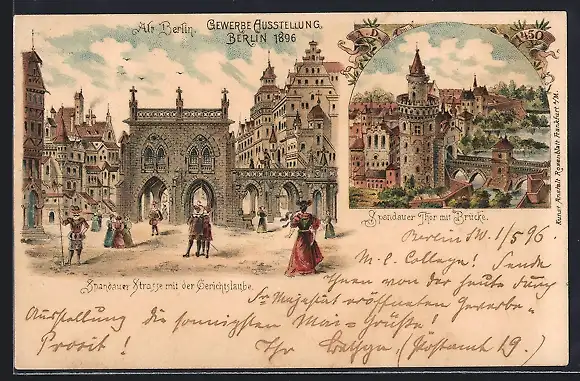 Alt Berlin.
GEWERBE AUSSTELLUNG
BERLIN 1896
A.D. 1450
Spandauer Thor mit Brücke.
Spandauer Strasse mit der Gerichtslaube.
Kunst Anstalt Rosenblatt Frankfurt a/M.
Berlin SW. 1/5 96.
M. l. College! Sende
Ihnen von der heute durch
Sr Majestät eröffneten Gewerbe-
Ausstellung die sonnigsten Mai-Grüße!
Prosit! Ihr (Postamt 19.)